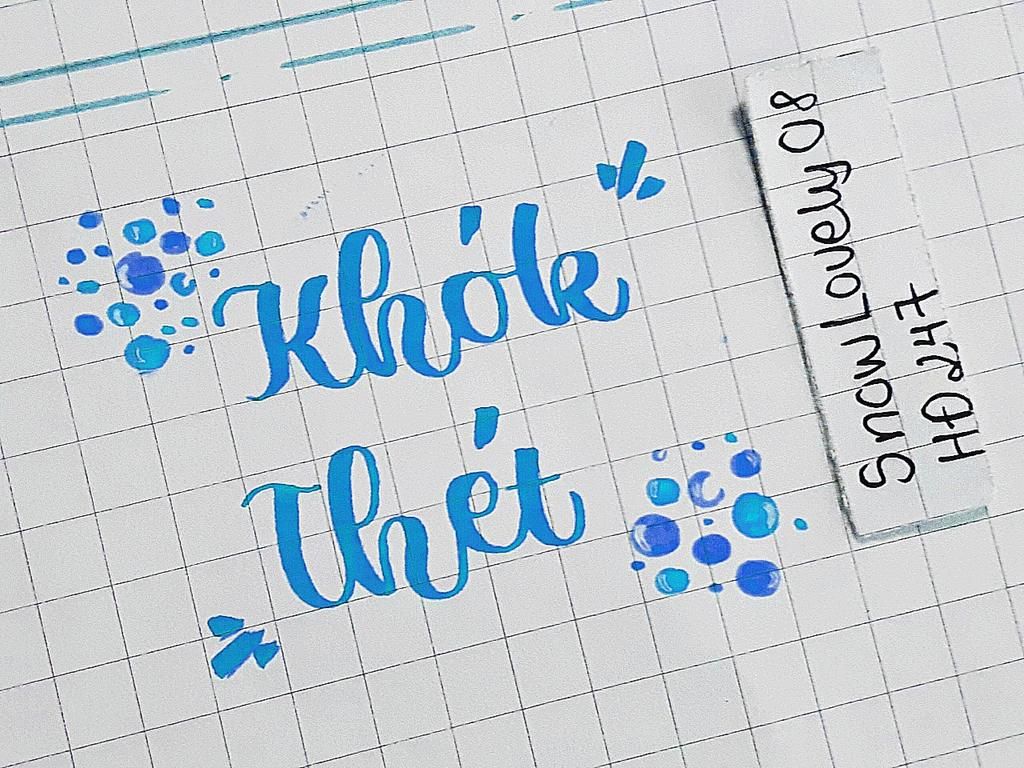 Khók
Thét
Snow Lovely 08
HĐ247